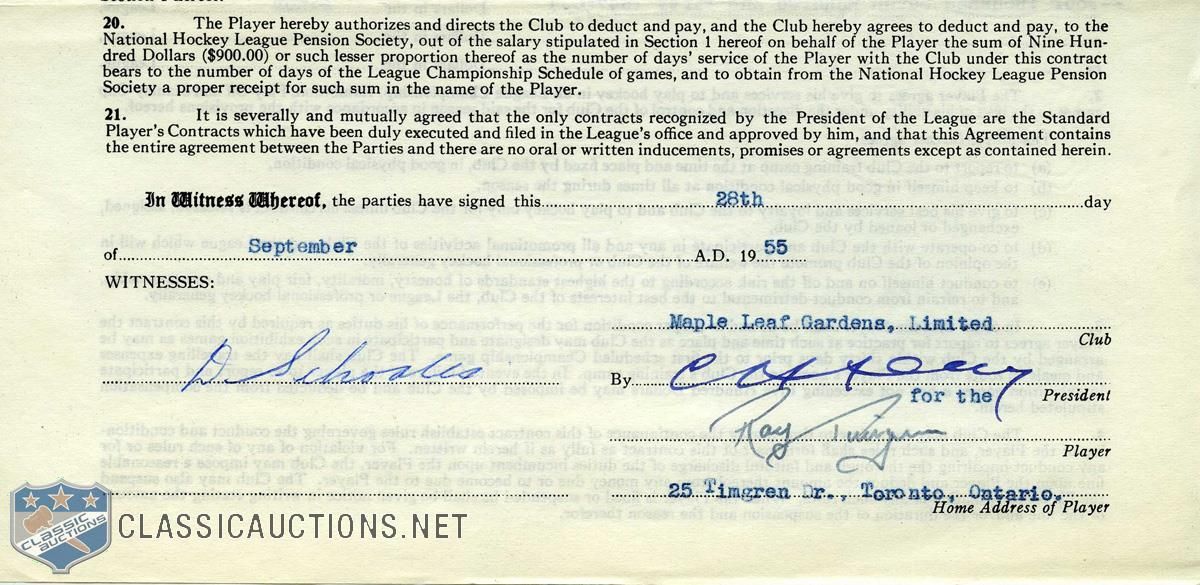 20. The Player hereby authorizes and directs the Club to deduct and pay, and the Club hereby agrees to deduct and pay, to the
National Hockey League Pension Society, out of the salary stipulated in Section 1 hereof on behalf of the Player the sum of Nine Hun-
dred Dollars ($900.00) or such lesser proportion thereof as the number of days' service of the Player with the Club under this contract
bears to the number of days of the League Championship Schedule of games, and to obtain from the National Hockey League Pension
Society a proper receipt for such sum in the name of the Player.
21. It is severally and mutually agreed that the only contracts recognized by the President of the League are the Standard
Player's Contracts which have been duly executed and filed in the League's office and approved by him, and that this Agreement contains
the entire agreement between the Parties and there are no oral or written inducements, promises or agreements except as contained herein.
In Witness Whereof, the parties have signed this 28th day
of September A.D. 19 55
WITNESSES:
Maple Leaf Gardens, Limited
Club
By
for the President
Ray Timgren
Player
25 Timgren Dr., Toronto, Ontario.
Home Address of Player
CLASSIC AUCTIONS
CLASSICAUCTIONS.NET